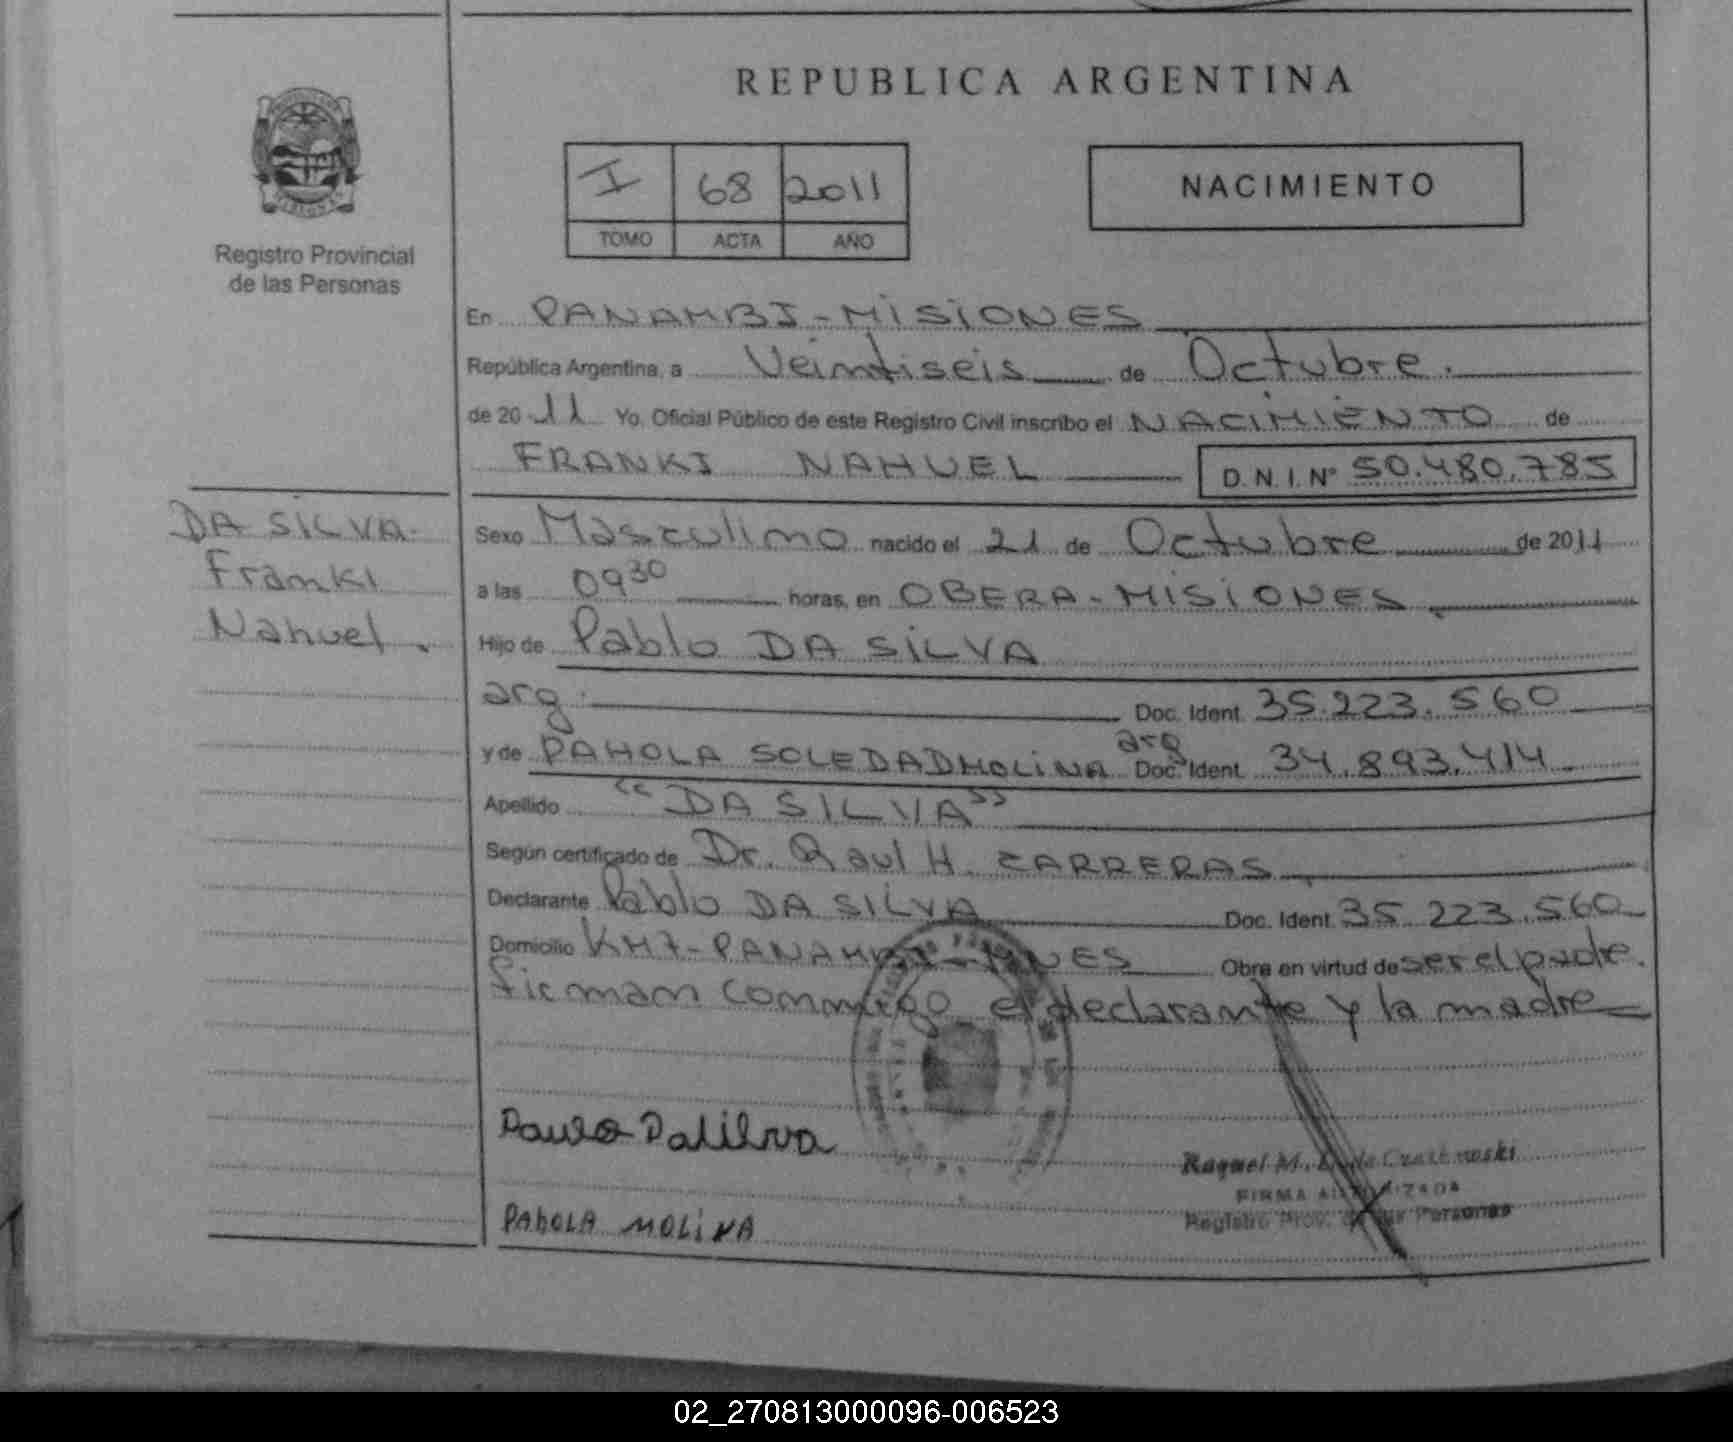 REPUBLICA ARGENTINA
I 68 2011
TOMO ACTA AÑO
NACIMIENTO
Registro Provincial
de las Personas
En PANAMBI - MISIONES
República Argentina, a Veintiseis de Octubre.
de 20 11 Yo, Oficial Público de este Registro Civil inscribo el NACIMIENTO de
FRANKI NAHUEL D.N.I. Nº 50.480.785
DA SILVA
Franki
Nahuel.
Sexo Masculino nacido el 21 de Octubre de 2011
a las 09 30 horas, en OBERA - MISIONES.
Hijo de Pablo DA SILVA
arg. Doc. Ident. 35.223.560
y de PAHOLA SOLEDAD MOLINA arg Doc. Ident. 34.893.414
Apellido "DA SILVA"
Según certificado de Dr. Raul H. CARRERAS.
Declarante Pablo DA SILVA Doc. Ident. 35.223.560
Domicilio KM 7 - PANAMBI - MNES Obra en virtud de ser el padre.
firman conmigo el declarante y la madre
Raquel M.
FIRMA AUTORIZADA
Registro Prov. de las Personas
PAHOLA MOLINA
02_270813000096-006523